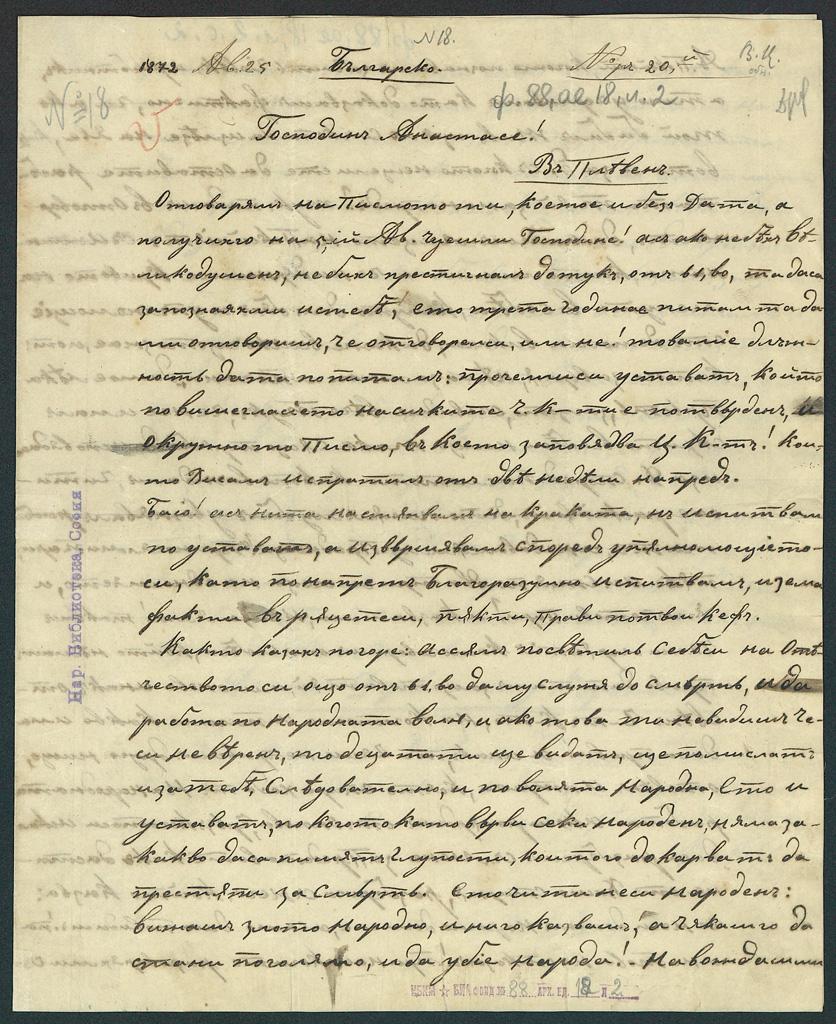 N 18.
1872 Ав. 25 Българско. № ръ 20,ій В. Ц.
обн.
№ 18
III
ф. 88, ае 18, л. 2
Господинъ Анастасе!
Въ Плѣвенъ.
Отговарямъ на Писмото ти, което е и безъ Дата, а
получихго на 5,ій Ав. чуешли Господине! азъ ако небѣхъ ве-
ликодушенъ, не бихъ престигналъ дотукъ, отъ 61,во, та даса
запознаяхми и стебѣ, ето трета годинае питам та да
ми отговоришъ, че отговорелси, или не! това міе длъж-
ность да та попитамъ: прочелиси уставатъ, който
по вишегласіето на сичките Ч. К-ти е потвърденъ, и
окружното Писмо, въ което заповядва Ц. К-тъ! Кои-
то Писамъ испратилъ отъ двѣ недѣли напредъ.
Баіо! азъ нита настѫпвамъ на краката, нъ испитвам
по уставатъ, а извършявамъ споредъ упълномощіето-
си, като понапретъ Благоразумно испитвамъ, и зема
факти въ рѫцетеси, пъкти, прави по твои Кефъ.
Както казахъ погоре: Ассямъ посвѣтилъ Себѣси на Оте-
чествотоси още отъ 61,во да му служѫ до смъртъ, и да
работа по народната воля, и ако това ти невидишъ че-
си невѣренъ, то децатати ще видатъ, ще помислатъ
и за тебѣ, Слѣдователно, и по волята Народна, Ето и
уставатъ, по когото като върви секи народенъ, няма за-
какво даса пимятъ глупости, които го докарватъ да
престѫпи за Смъртъ. Ето чити неси народенъ:
вижашъ злото Народно, и него казвашъ, а чякашъ го да
стани поголямо, и да убіе народа! - На вонидашми
Нар. Библиотека, София
НБКМ ☆ БИА ФОНД № 88 АРХ. ЕД. 18 Л 2